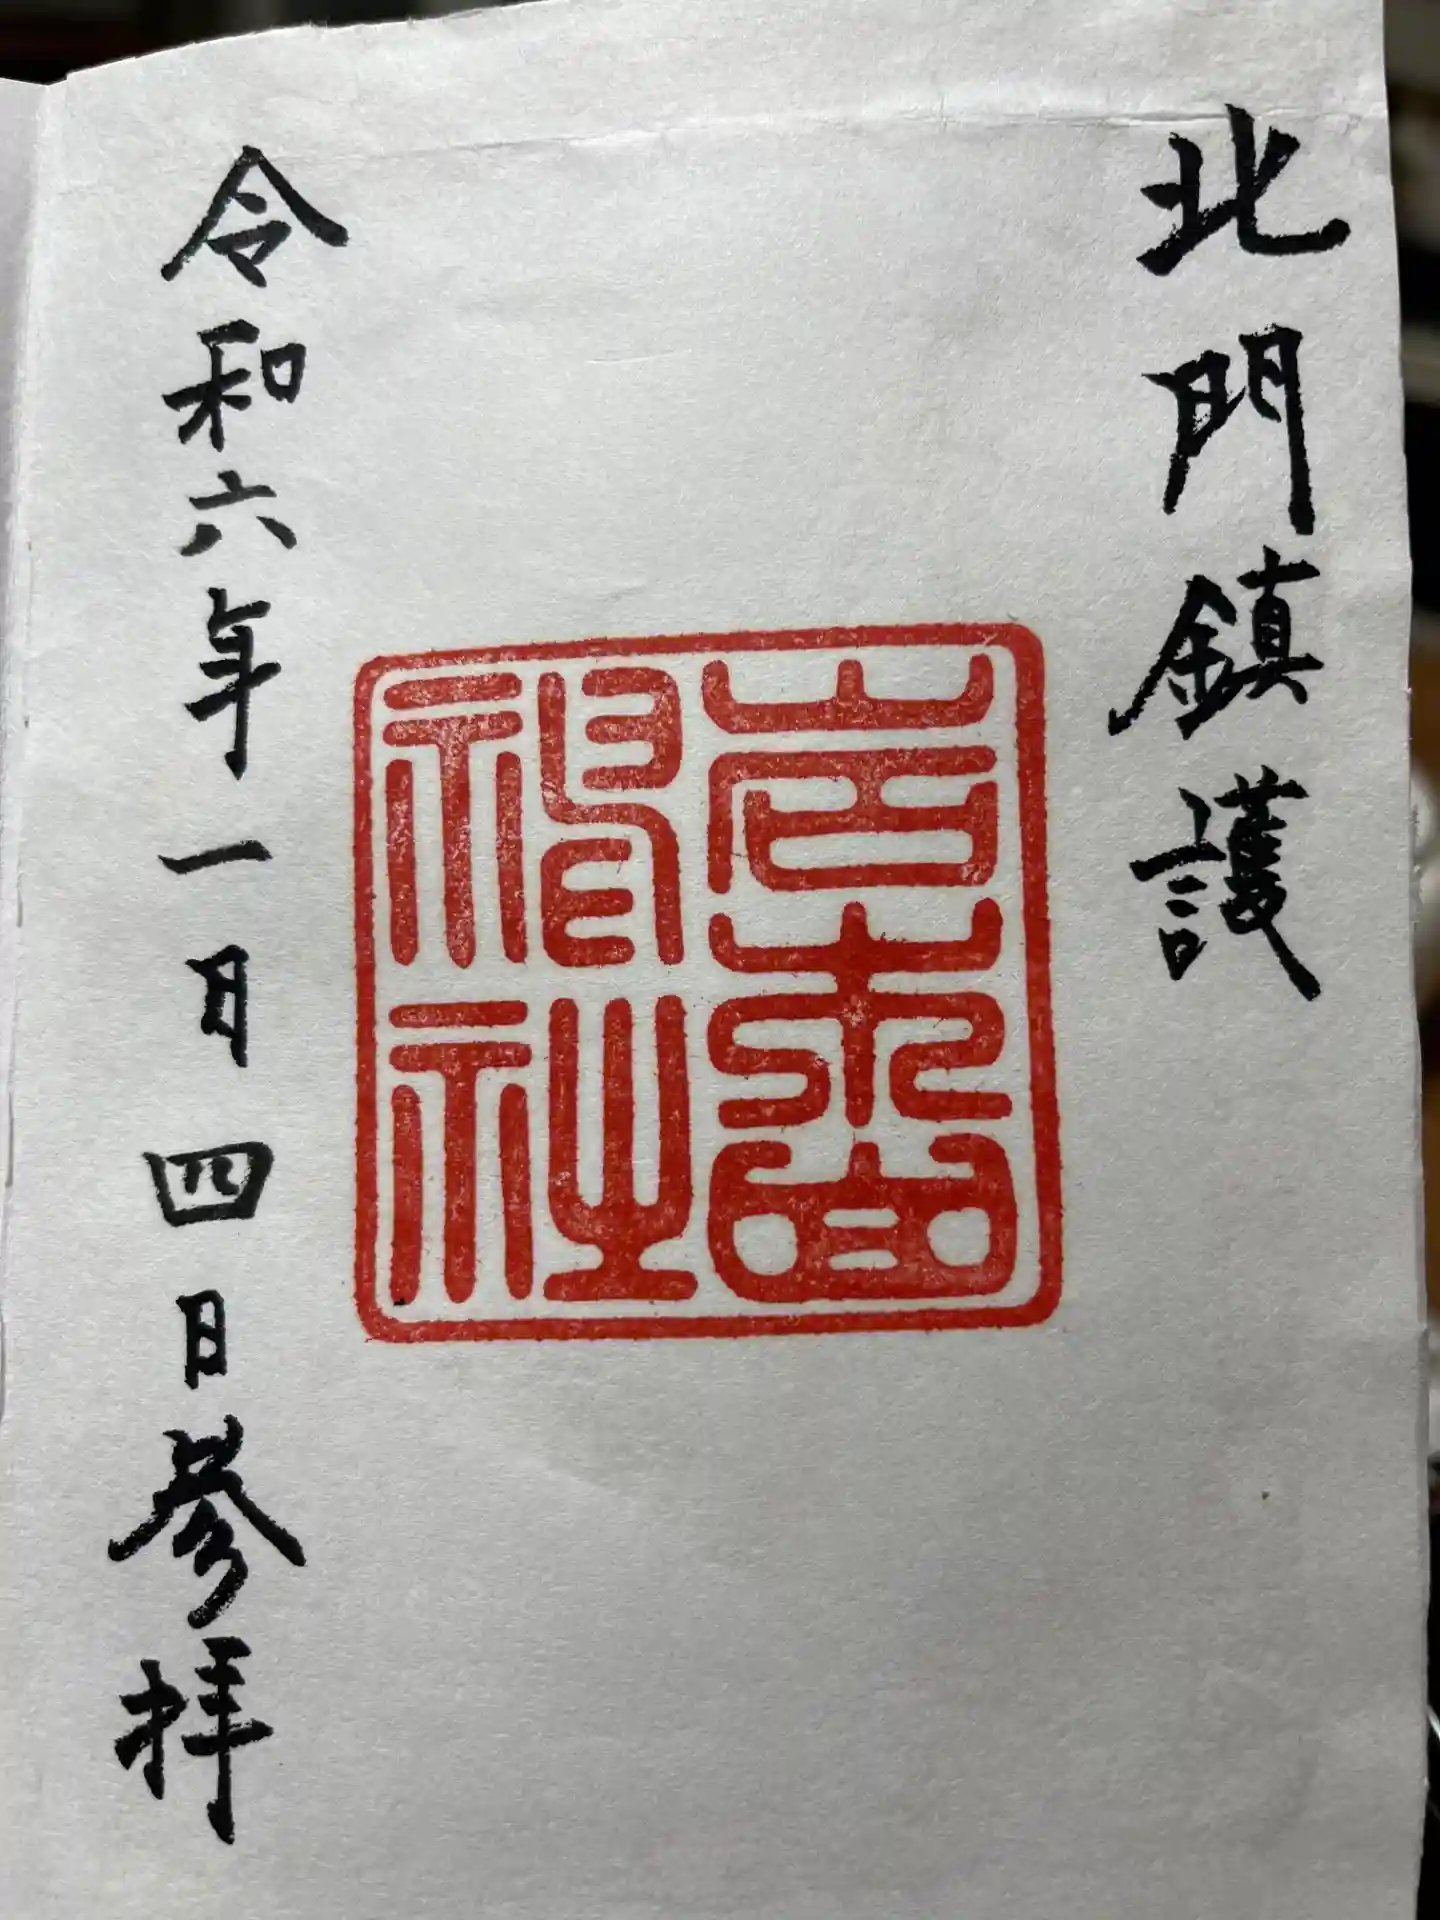 北門鎮護
岩木山
神社
令和六年一月四日参拝